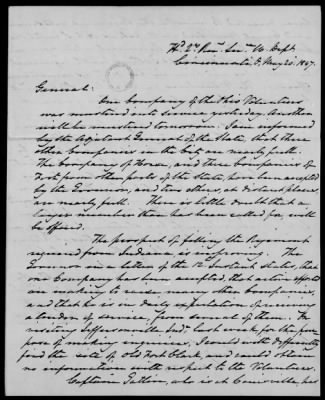 Hd Qrs Rec. Ser. W. Dept
Cincinnati, O. May 20. 1847.
General:
One Company of the Ohio Volunteers
was mustered into service yesterday. Another
will be mustered tomorrow. I am informed
by the Adjutant General of the State, that three
other Companies in the City are nearly full.
One Company of Horse, and three Companies of
Foot from other parts of the State, have been accepted
by the Governor, and two others, at distant places,
are nearly full. There is little doubt that a
larger number than has been called for, will
be offered.
The prospect of filling the Regiment
required from Indiana is improving. The
Governor in a letter of the 12 Instant, states, that
one Company has been accepted, that active efforts
are making to raise many other Companies,
and that he is in daily expectation of receiving
a tender of service, from several of them. In
visiting Jeffersonville Ind. last week for the pur-
pose of making enquiries, I could with difficulty
find the site of old Fort Clark, and could obtain
no information with respect to the Volunteers.
Captain Eaton, who is at Louisville, has